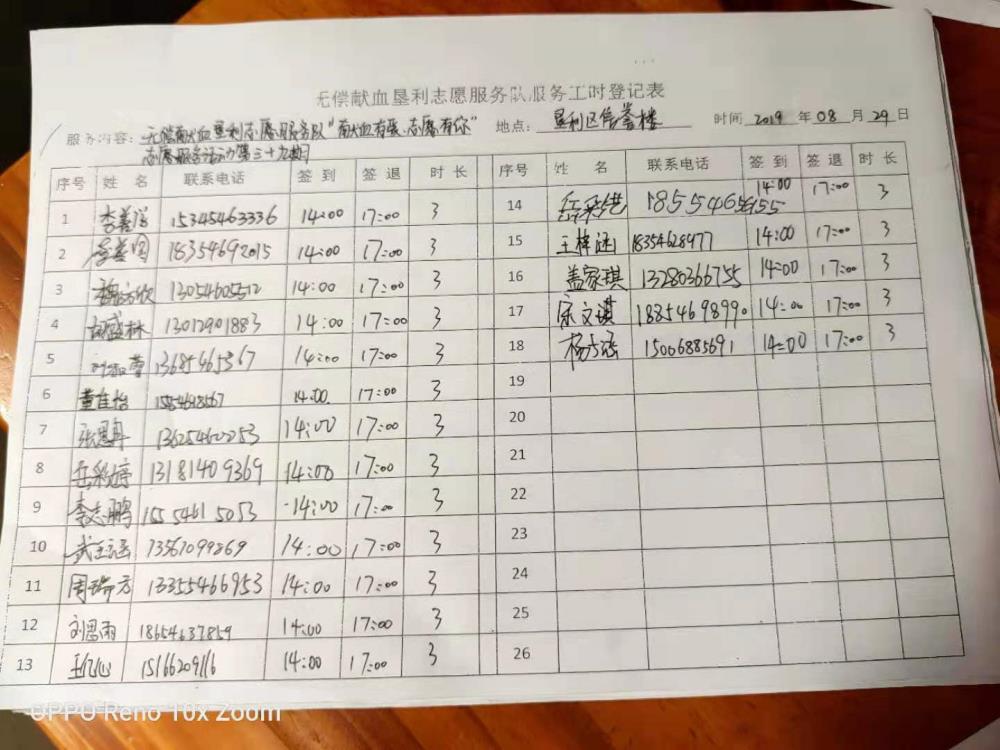 无偿献血垦利志愿服务队服务工时登记表
服务内容: 无偿献血垦利志愿服务队"献血有我.志愿有你" 地点: 垦利区 时间 2019 年 08 月 29 日
志愿服务活动第三十九期
序号 姓 名 联系电话 签 到 签 退 时 长 序号 姓 名 联系电话 签 到 签 退 时 长
1 15345463336 14:00 17:00 3 14 14:00 17:00 3
2 18354692015 14:00 17:00 3 15 王梓涵 18354628977 14:00 17:00 3
3 13054605512 14:00 17:00 3 16 盖家琪 13280366755 14:00 17:00 3
4 胡盛林 13012901883 14:00 17:00 3 17 宋文琪 18854698990 14:00 17:00 3
5 13685465367 14:00 17:00 3 18 15006885691 14:00 17:00 3
6 董佳怡 14:00 17:00 3 19
7 张恩冉 14:00 17:00 3 20
8 岳彩婷 13181409369 14:00 17:00 3 21
9 李志鹏 155 5461 5053 14:00 17:00 3 22
10 13561099869 14:00 17:00 3 23
11 周瑞方 13355466953 14:00 17:00 3 24
12 刘思雨 18654637859 14:00 17:00 3 25
13 15166209116 14:00 17:00 3 26
OPPO Reno 10x Zoom